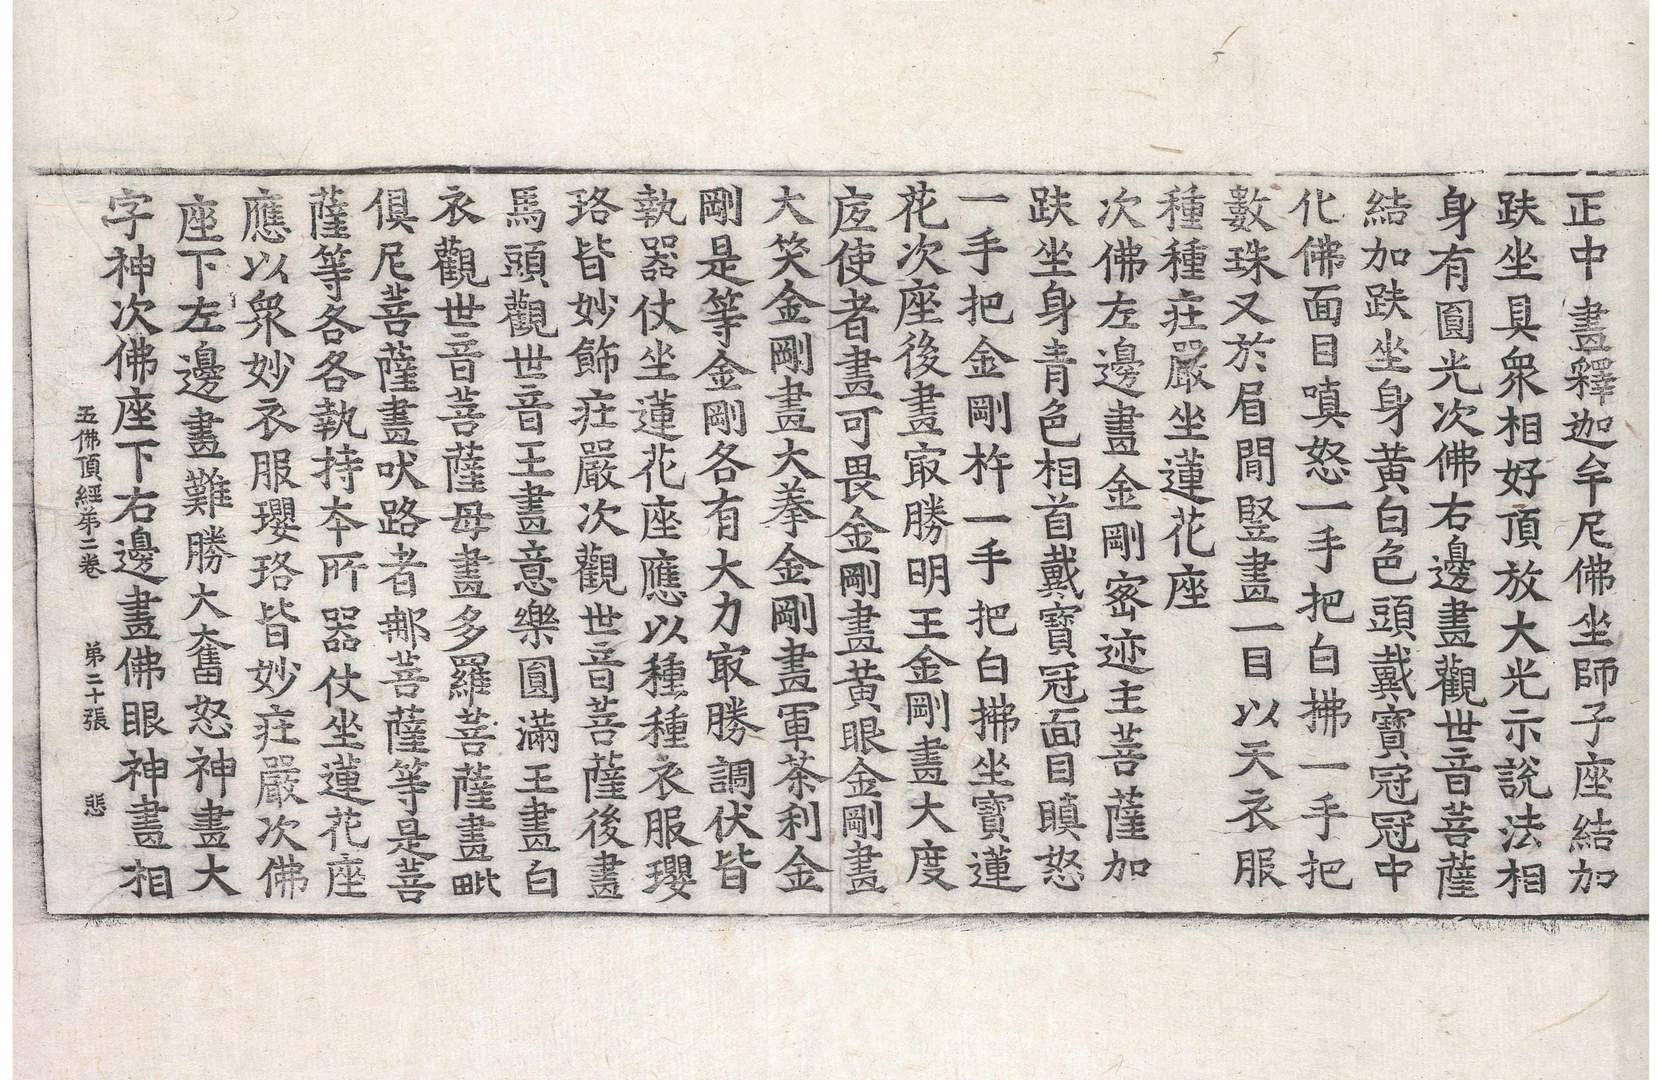 正中畫釋迦牟尼佛坐師子座結加
趺坐具衆相好頂放大光示說法相
身有圓光次佛右邊畫觀世音菩薩
結加趺坐身黃白色頭戴寶冠冠中
化佛面目嗔怒一手把白拂一手把
數珠又於眉間竪畫一目以天衣服
種種莊嚴坐蓮花座
次佛左邊畫金剛密迹主菩薩加
趺坐身青色相首戴寶冠面目瞋怒
一手把金剛杵一手把白拂坐寶蓮
花次座後畫㝡勝明王金剛畫大度
底使者畫可畏金剛畫黃眼金剛畫
大笑金剛畫大拳金剛畫軍荼利金
剛是等金剛各有大力㝡勝調伏皆
執器仗坐蓮花座應以種種衣服瓔
珞皆妙飾莊嚴次觀世音菩薩後畫
馬頭觀世音王畫意樂圓滿王畫白
衣觀世音菩薩母畫多羅菩薩畫毗
俱尼菩薩畫吠路者那菩薩等是菩
薩等各各執持本所器仗坐蓮花座
應以衆妙衣服瓔珞皆妙莊嚴次佛
座下左邊畫難勝大奮怒神畫大
字神次佛座下右邊畫佛眼神畫相
五佛頂經第二卷 第二十張 悲